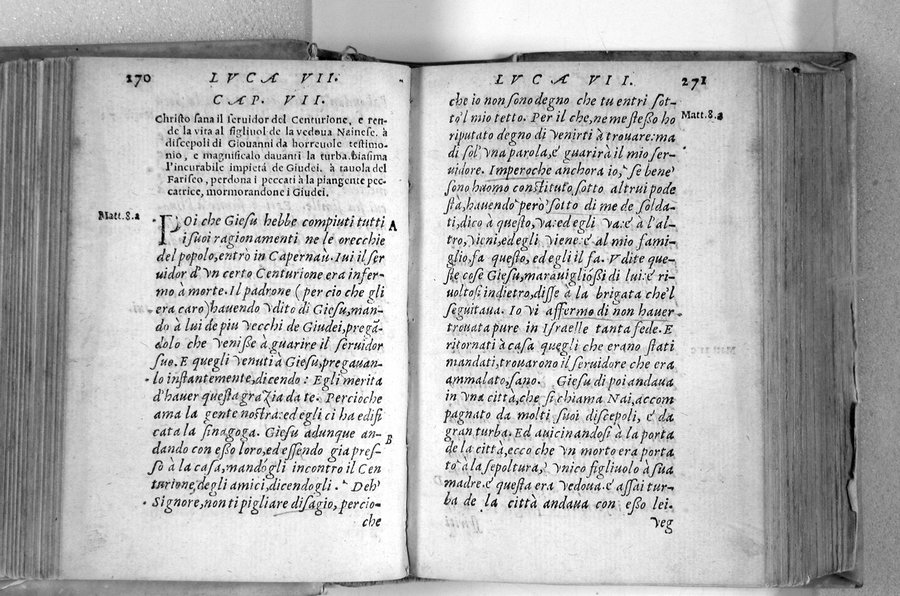 270 LVCÆ VII.
CAP. VII.
Christo sana il seruidor del Centurione, e ren-
de la vita al figliuol de la vedoua Nainese. à
discepoli di Giouanni da horreuole testimo-
nio, e magnificalo dauanti la turba. biasima
l'incurabile impietà de Giudei. à tauola del
Fariseo, perdona i peccati à la piangente pec-
catrice, mormorandone i Giudei.
Matt.8.a
POi che Giesu hebbe compiuti tutti A
i suoi ragionamenti ne le orecchie
del popolo, entrò in Capernau. Iui il ser
uidor d'vn certo Centurione era infer-
mo à morte. Il padrone (per cio che gli
era caro) hauendo vdito di Giesu, man-
dò à lui de piu vecchi de Giudei, pregã-
dolo che venisse à guarire il seruidor
suo. E quegli venuti à Giesu, pregauan-
lo instantemente, dicendo: Egli merita
d'hauer questa grazia da te. Percioche
ama la gente nostra: ed egli ci ha edifi
cata la sinagoga. Giesu adunque an- B
dando con esso loro, ed essendo gia pres-
so à la casa, mandógli incontro il Cen
turione, degli amici, dicendogli. Deh'
Signore, non ti pigliare disagio, percio-
che
LVCÆ VII. 271
che io non sono degno che tu entri sot-
to'l mio tetto. Per il che, ne me stesso ho Matt.8.a
riputato degno di venirti à trouare: ma
di sol' vna parola, e' guarirà il mio ser-
uidore. Imperoche anchora io, se bene'
sono huomo constituto sotto altrui pode
stà, hauendo però sotto di me de solda-
ti, dico à questo, va: ed egli va: e' à l'al-
tro, vieni, ed egli viene: e' al mio fami-
glio, fa questo, ed egli il fa. Vdite que-
ste cose Giesu, marauigliossi di lui: e' ri-
uoltosi indietro, disse à la brigata che'l
seguitaua. Io vi affermo di non hauer
trouata pure in Israelle tanta fede. E
ritornati à casa quegli che erano stati
mandati, trouarono il seruidore che era
ammalato, sano. Giesu di poi andaua
in vna città, che si chiama Nai, accom
pagnato da molti suoi discepoli, e' da
gran turba. Ed auicinandosi à la porta
de la città, ecco che vn morto era porta
to à la sepoltura, vnico figliuolo à sua
madre. e' questa era vedoua. e' assai tur-
ba de la città andaua con esso lei.
veg